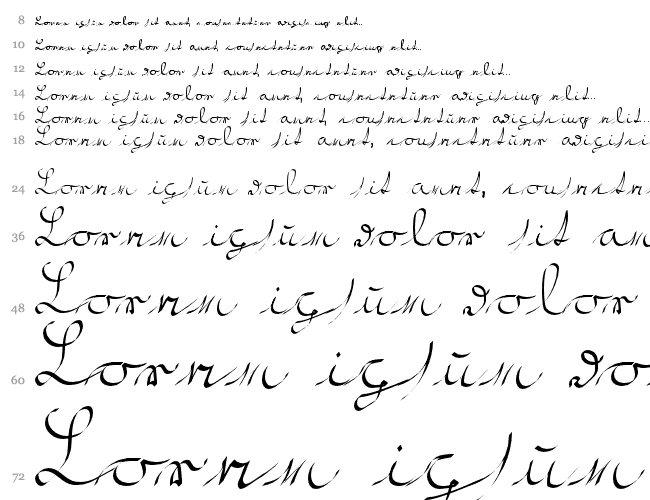 8 Lorem ipsum dolor sit amet, consectetuer adipiscing elit..
10 Lorem ipsum dolor sit amet, consectetuer adipiscing elit..
12 Lorem ipsum dolor sit amet, consectetuer adipiscing elit..
14 Lorem ipsum dolor sit amet, consectetuer adipiscing elit..
16 Lorem ipsum dolor sit amet, consectetuer adipiscing elit..
18 Lorem ipsum dolor sit amet, consectetuer adipisci
24 Lorem ipsum dolor sit amet, consecte
36 Lorem ipsum dolor sit am
48 Lorem ipsum dolor
60 Lorem ipsum do
72 Lorem ipsum